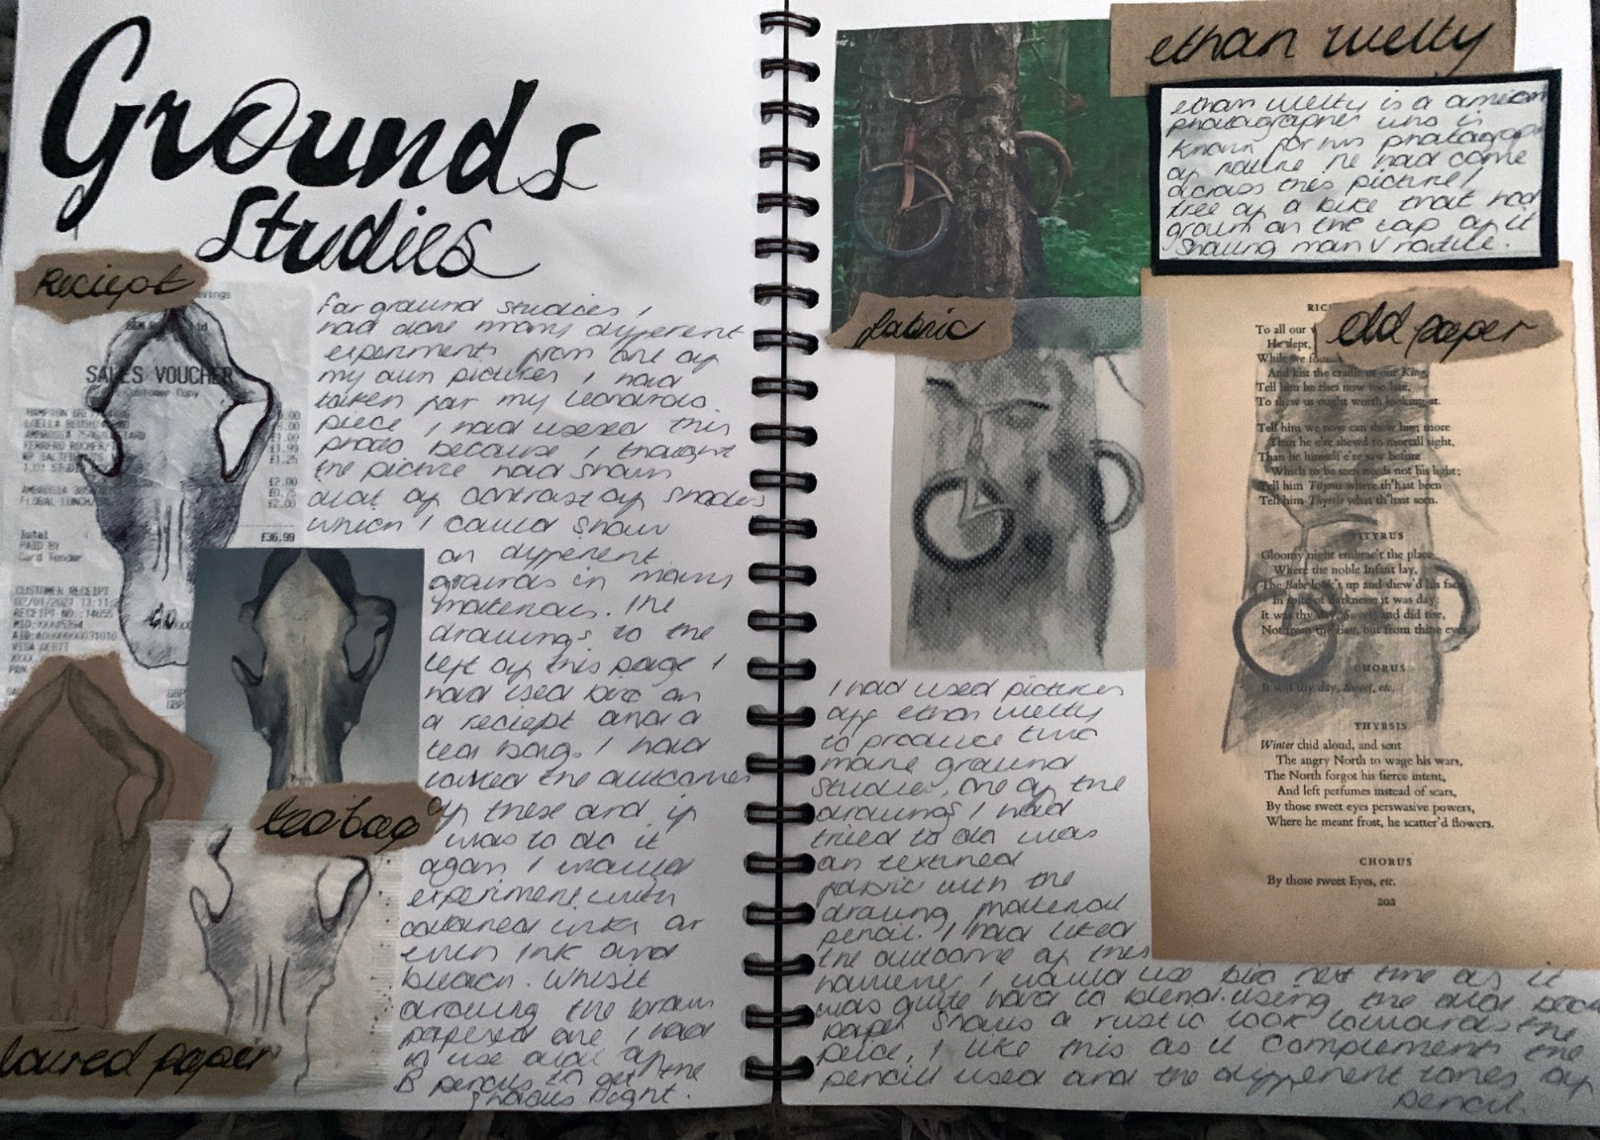 Grounds
Studies
Reciept
SALES VOUCHER
Customer Copy
£36.99
Total
PAID BY
Card Tender
CUSTOMER RECEIPT
VISA DEBIT
for ground studies I
had done many different
experiments from one of
my own pictures I had
taken for my Leonardo
piece I had used this
photo because I thought
the picture had shown
alot of contrast of shades
which I could show
on different
grounds in many
materials. The
drawings to the
left of this page I
had used bic on
a reciept and a
tea bag. I had
liked the outcomes
of these and if
I was to do it
again I would
experiment with
coloured inks or
even ink and
bleach. Whilst
drawing the brown
papered one I had
to use alot of the
B pencils to get the
shadows right.
teabag
loured paper
ethan welty
ethan welty is a american
photographer who is
known for his photograp
of nature he had come
across this picture/
tree of a bike that had
grown on the top of it
showing man v nature.
fabric
old paper
RIC
To all our
He slept,
While we
And kist the cradle of our King,
Tell him he rises now too late,
To show us ought worth looking at.
Tell him we now can shew him more
Than he e're shewd to mortall sight,
Than he himself e're saw before
Which to be seen needs not his light:
Tell him Tityrus where th'hast been
Tell him Thyrsis what th'hast seen.
TITYRUS
Gloomy night embrac't the place
Where the noble Infant lay,
The Babe look't up and shew'd his face
In spite of darknesse it was day:
It was thy day, Sweet, and did rise,
Not from the East, but from thine eyes
CHORUS
It was thy day, Sweet, etc.
THYRSIS
Winter chid aloud, and sent
The angry North to wage his wars,
The North forgot his fierce intent,
And left perfumes instead of scars,
By those sweet eyes perswasive powers,
Where he meant frost, he scatter'd flowers.
CHORUS
By those sweet Eyes, etc.
202
I had used pictures
off ethan welty
to produce two
more ground
studies. One of the
drawings I had
tried to do was
on textured
fabric with the
drawing material
pencil. I had liked
the outcome of this
however I would use bic next time as it
was quite hard to blend. Using the old book
paper shows a rustic look towards the
peice, I like this as it complements the
pencil used and the different tones of
pencil.